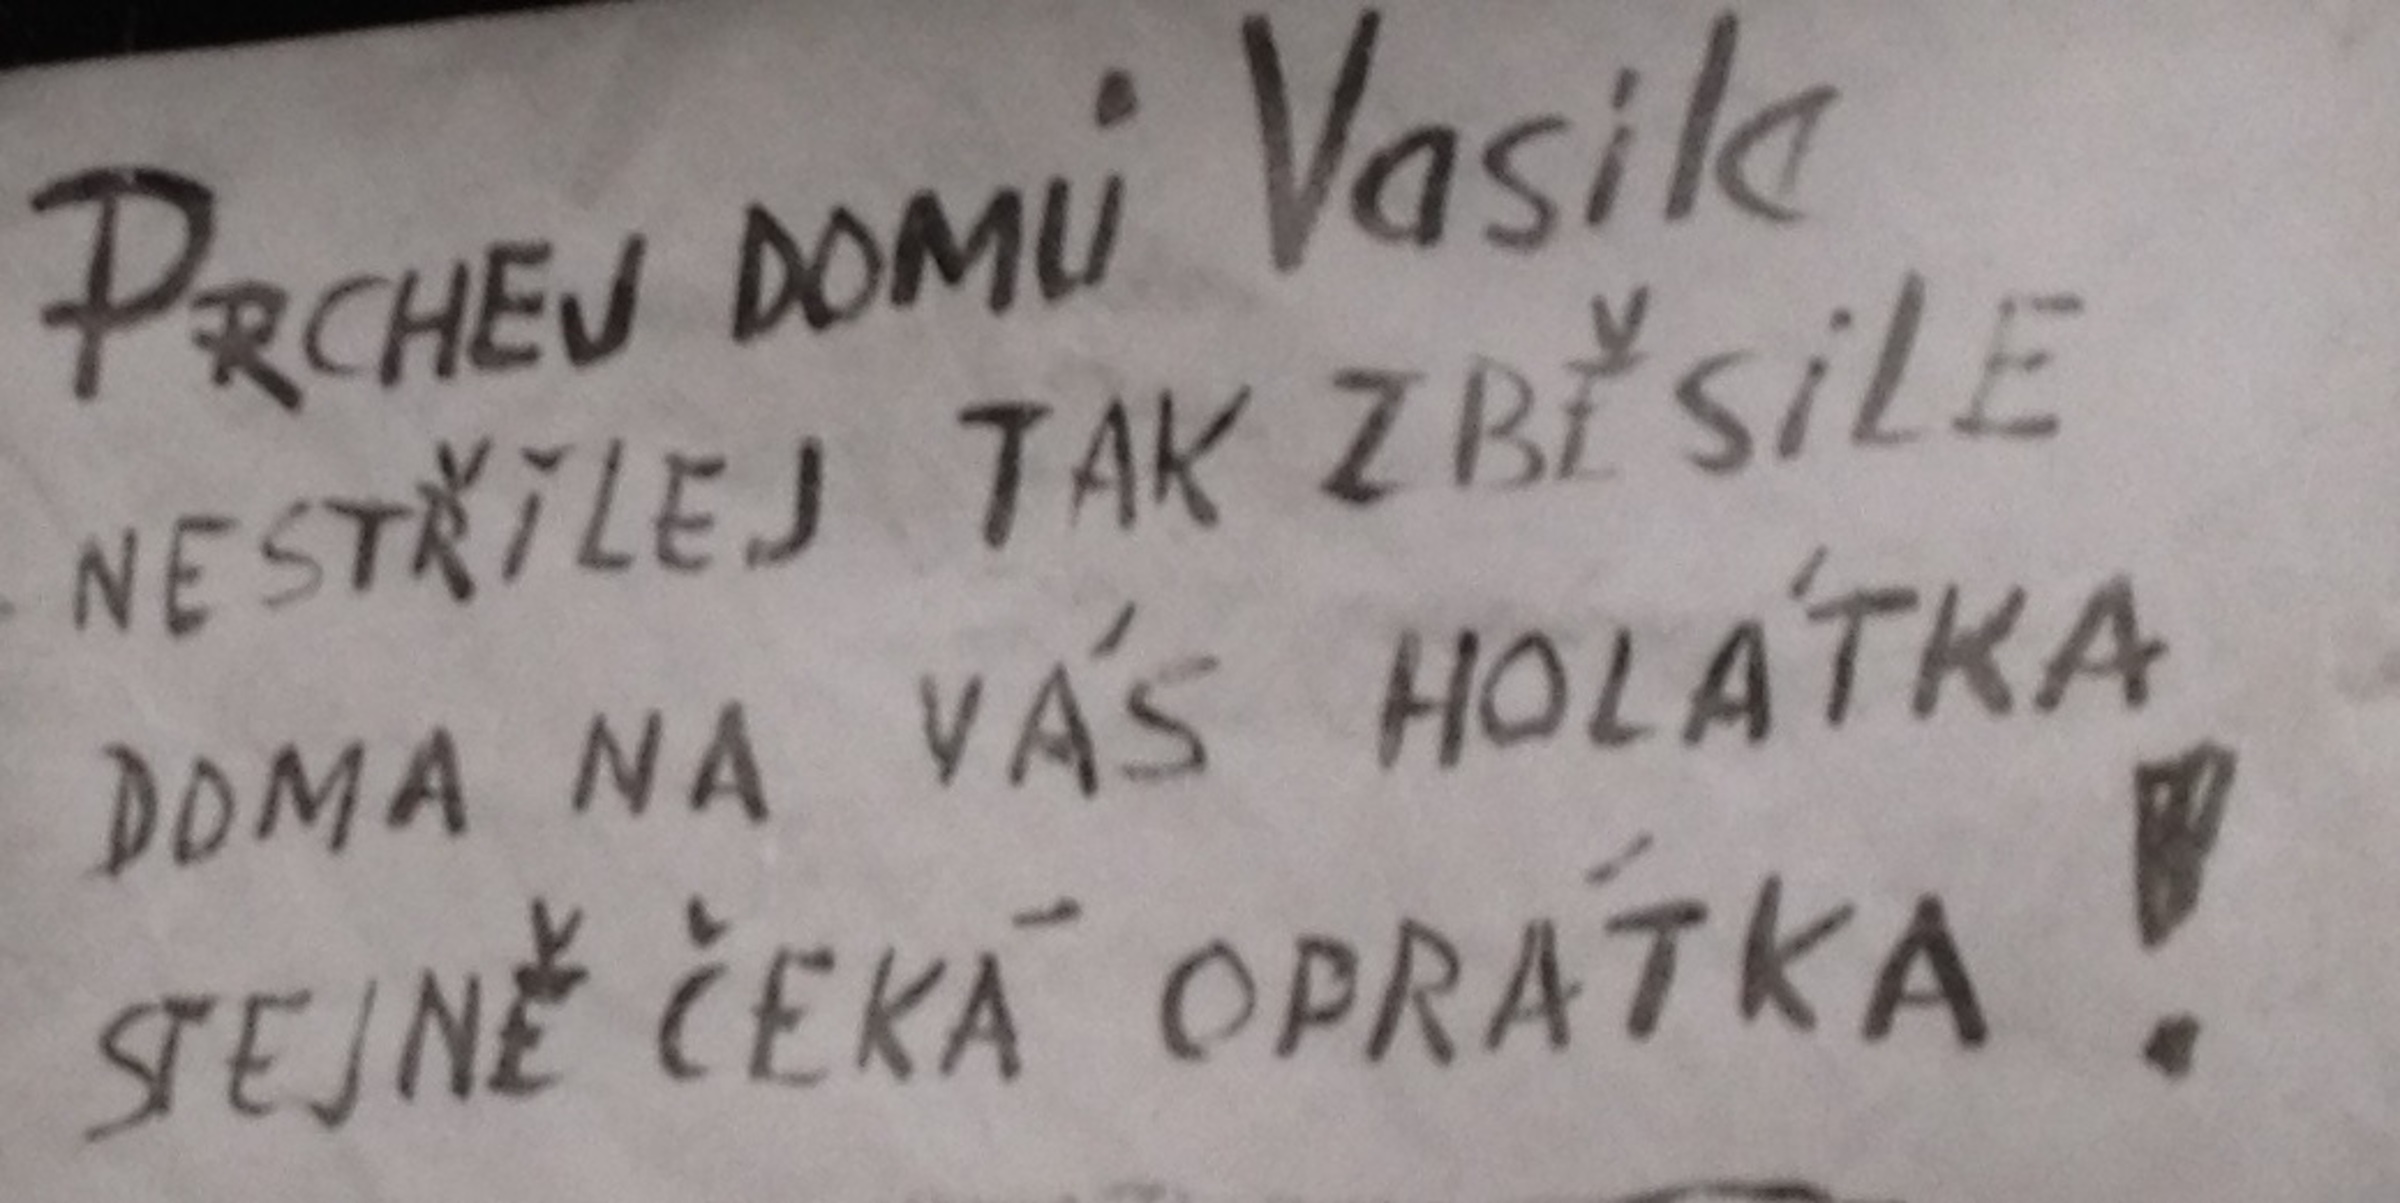 PRCHEJ DOMŮ Vasile
NESTŘÍLEJ TAK ZBĚSILE
DOMA NA VÁS HOLÁTKA
STEJNĚ ČEKÁ OPRÁTKA!